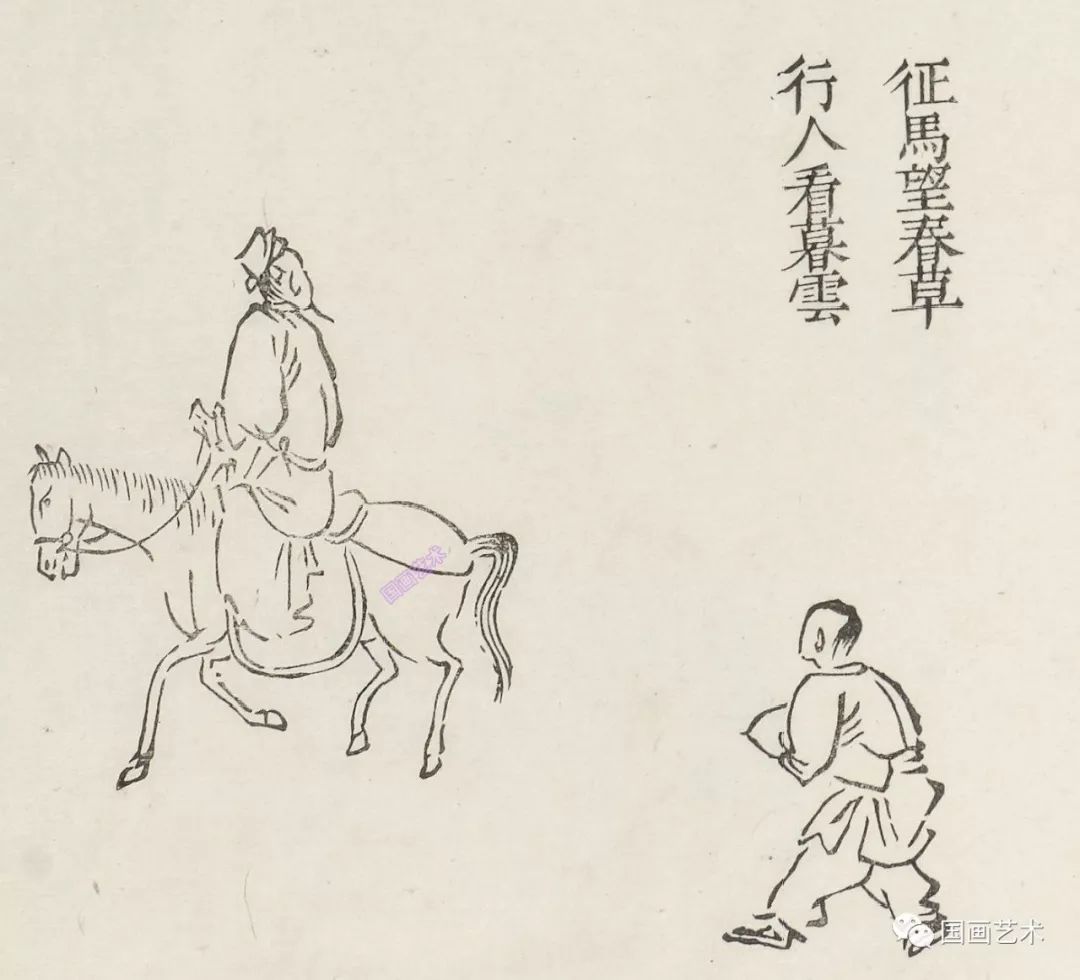 征馬望春草
行人看暮雲
国画艺术
国画艺术